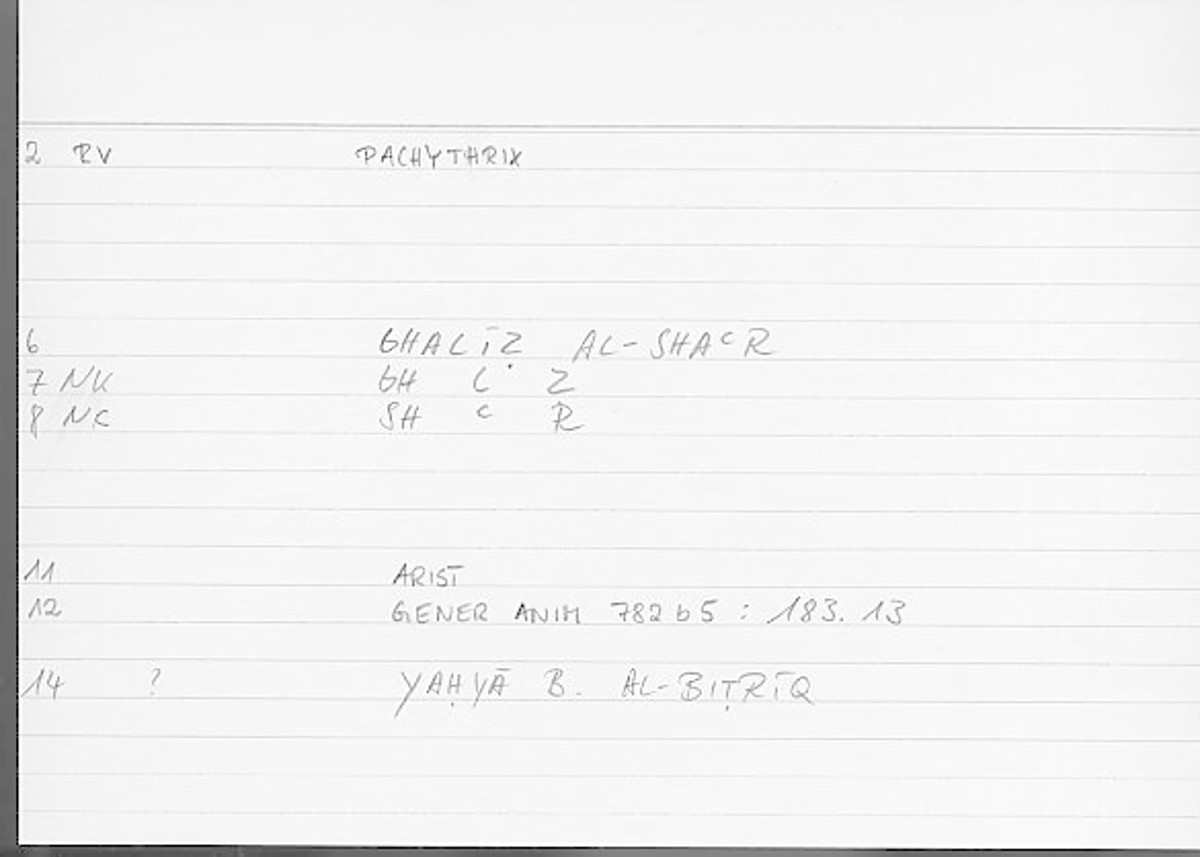 2 RV PACHYTHRIX
6 GHALĪẒ AL-SHAᶜR
7 NK GH L Z
8 NK SH ᶜ R
11 ARIST
12 GENER ANIM 782 b 5 : 183. 13
14 ? YAḤYĀ B. AL-BIṬRĪQ